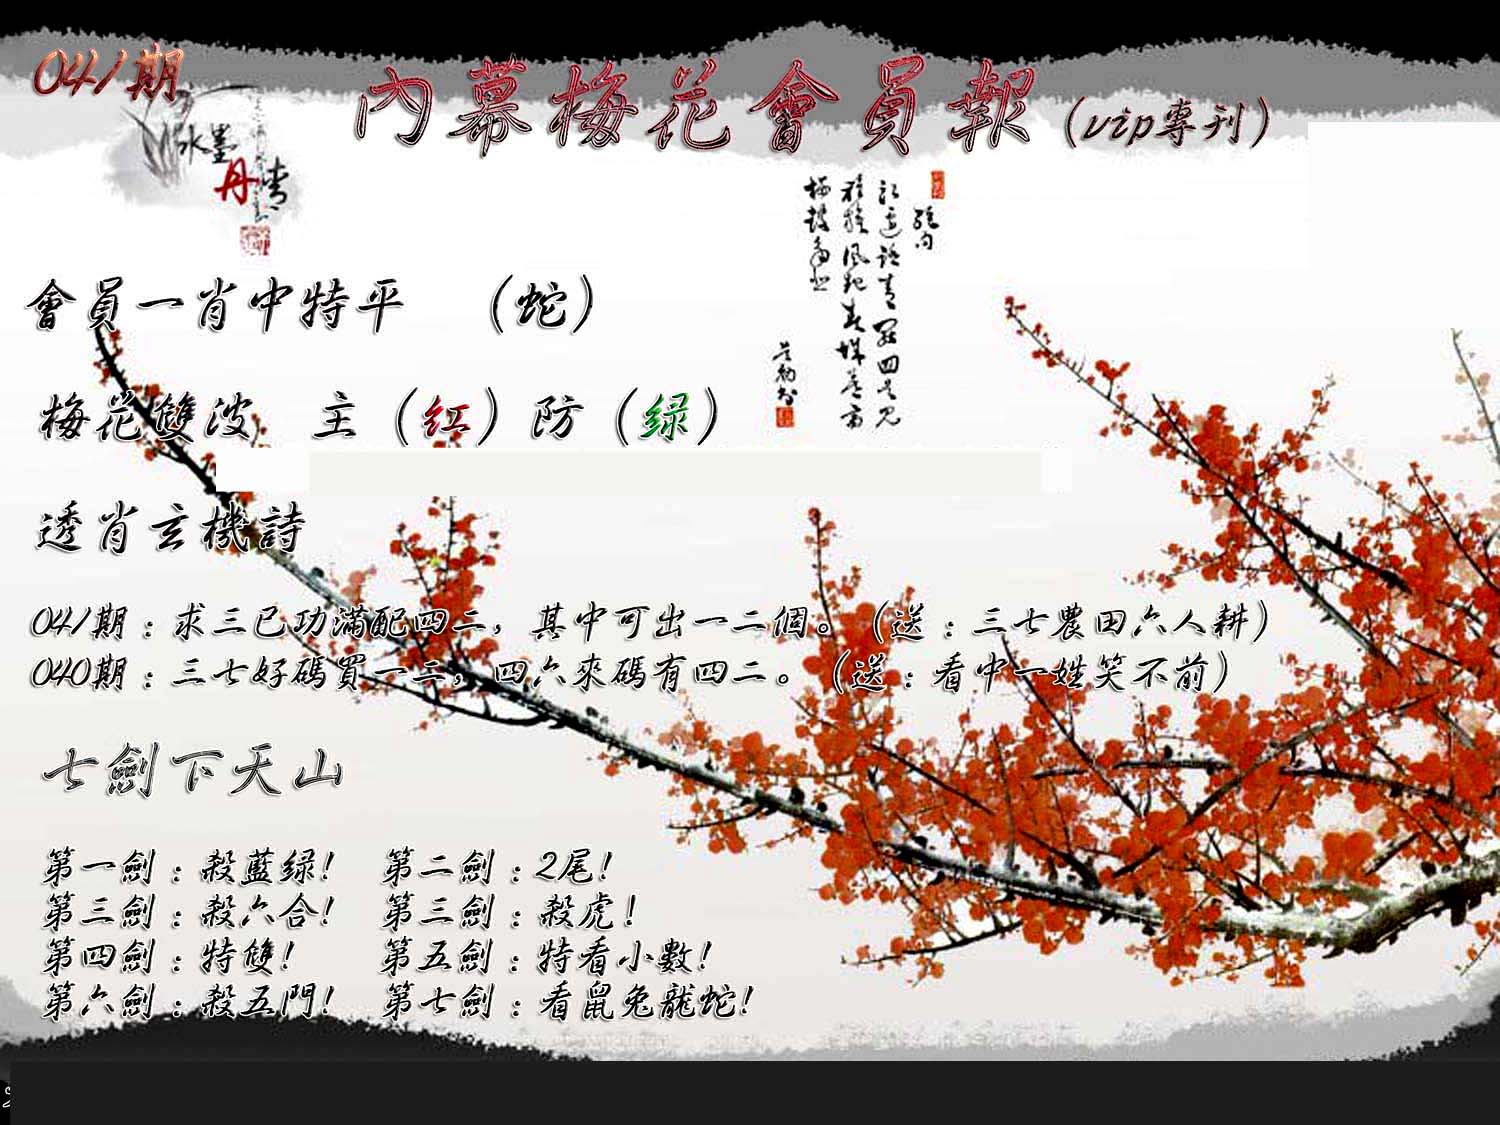 041期
內幕梅花會員報(vip專刊)
水墨
丹青
會員一肖中特平 (蛇)
梅花雙波 主(红)防(绿)
透肖玄機詩
041期:求三已功滿配四二,其中可出一二個。(送:三七農田六人耕)
040期:三七好碼買一二,四六來碼有四二。(送:看中一姓笑不前)
七劍下天山
第一劍:殺藍绿! 第二劍:2尾!
第三劍:殺六合! 第三劍:殺虎!
第四劍:特雙! 第五劍:特看小數!
第六劍:殺五門! 第七劍:看鼠兔龍蛇!